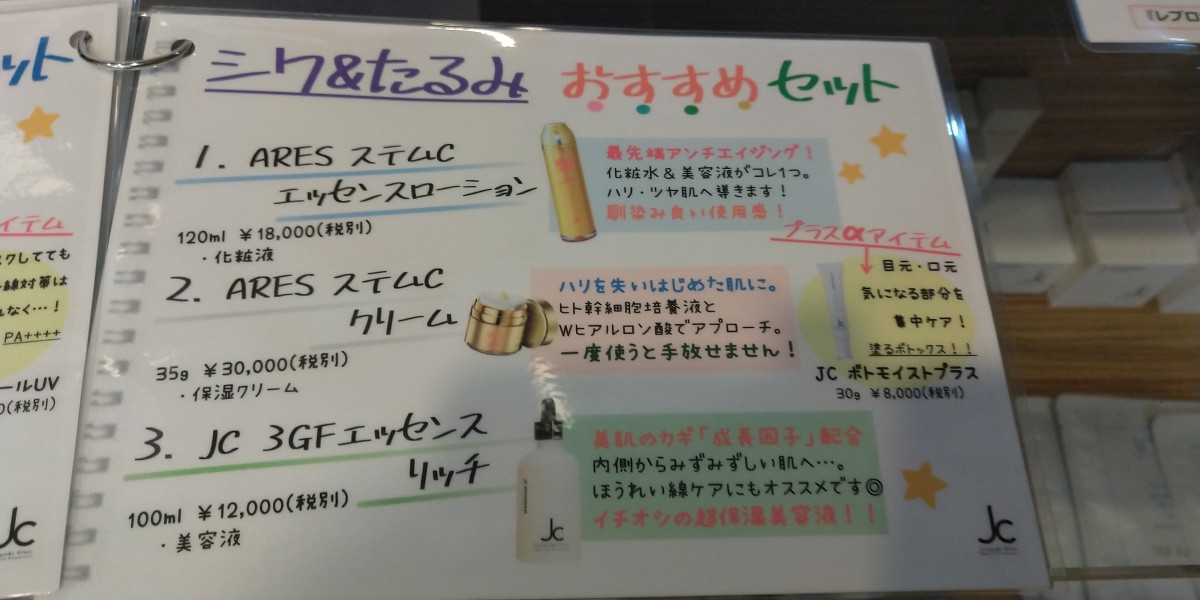 シワ&たるみ おすすめセット
1. ARES ステムC
エッセンスローション
120ml ¥18,000(税別)
・化粧液
最先端アンチエイジング！
化粧水&美容液がコレ1つ。
ハリ・ツヤ肌へ導きます！
馴染み良い使用感！
2. ARES ステムC
クリーム
35g ¥30,000(税別)
・保湿クリーム
ハリを失いはじめた肌に。
ヒト幹細胞培養液と
Wヒアルロン酸でアプローチ。
一度使うと手放せません！
プラスαアイテム
目元・口元
気になる部分を
集中ケア！
塗るボトックス！！
JC ボトモイストプラス
30g ¥8,000(税別)
3. JC 3GFエッセンス
リッチ
100ml ¥12,000(税別)
・美容液
美肌のカギ「成長因子」配合
内側からみずみずしい肌へ…。
ほうれい線ケアにもオススメです◎
イチオシの超保湿美容液！！
Jc
Jc
ット
イテム
クしてても
線対策は
なく…！
PA++++
ールUV
(税別)
Jc
『レプロ